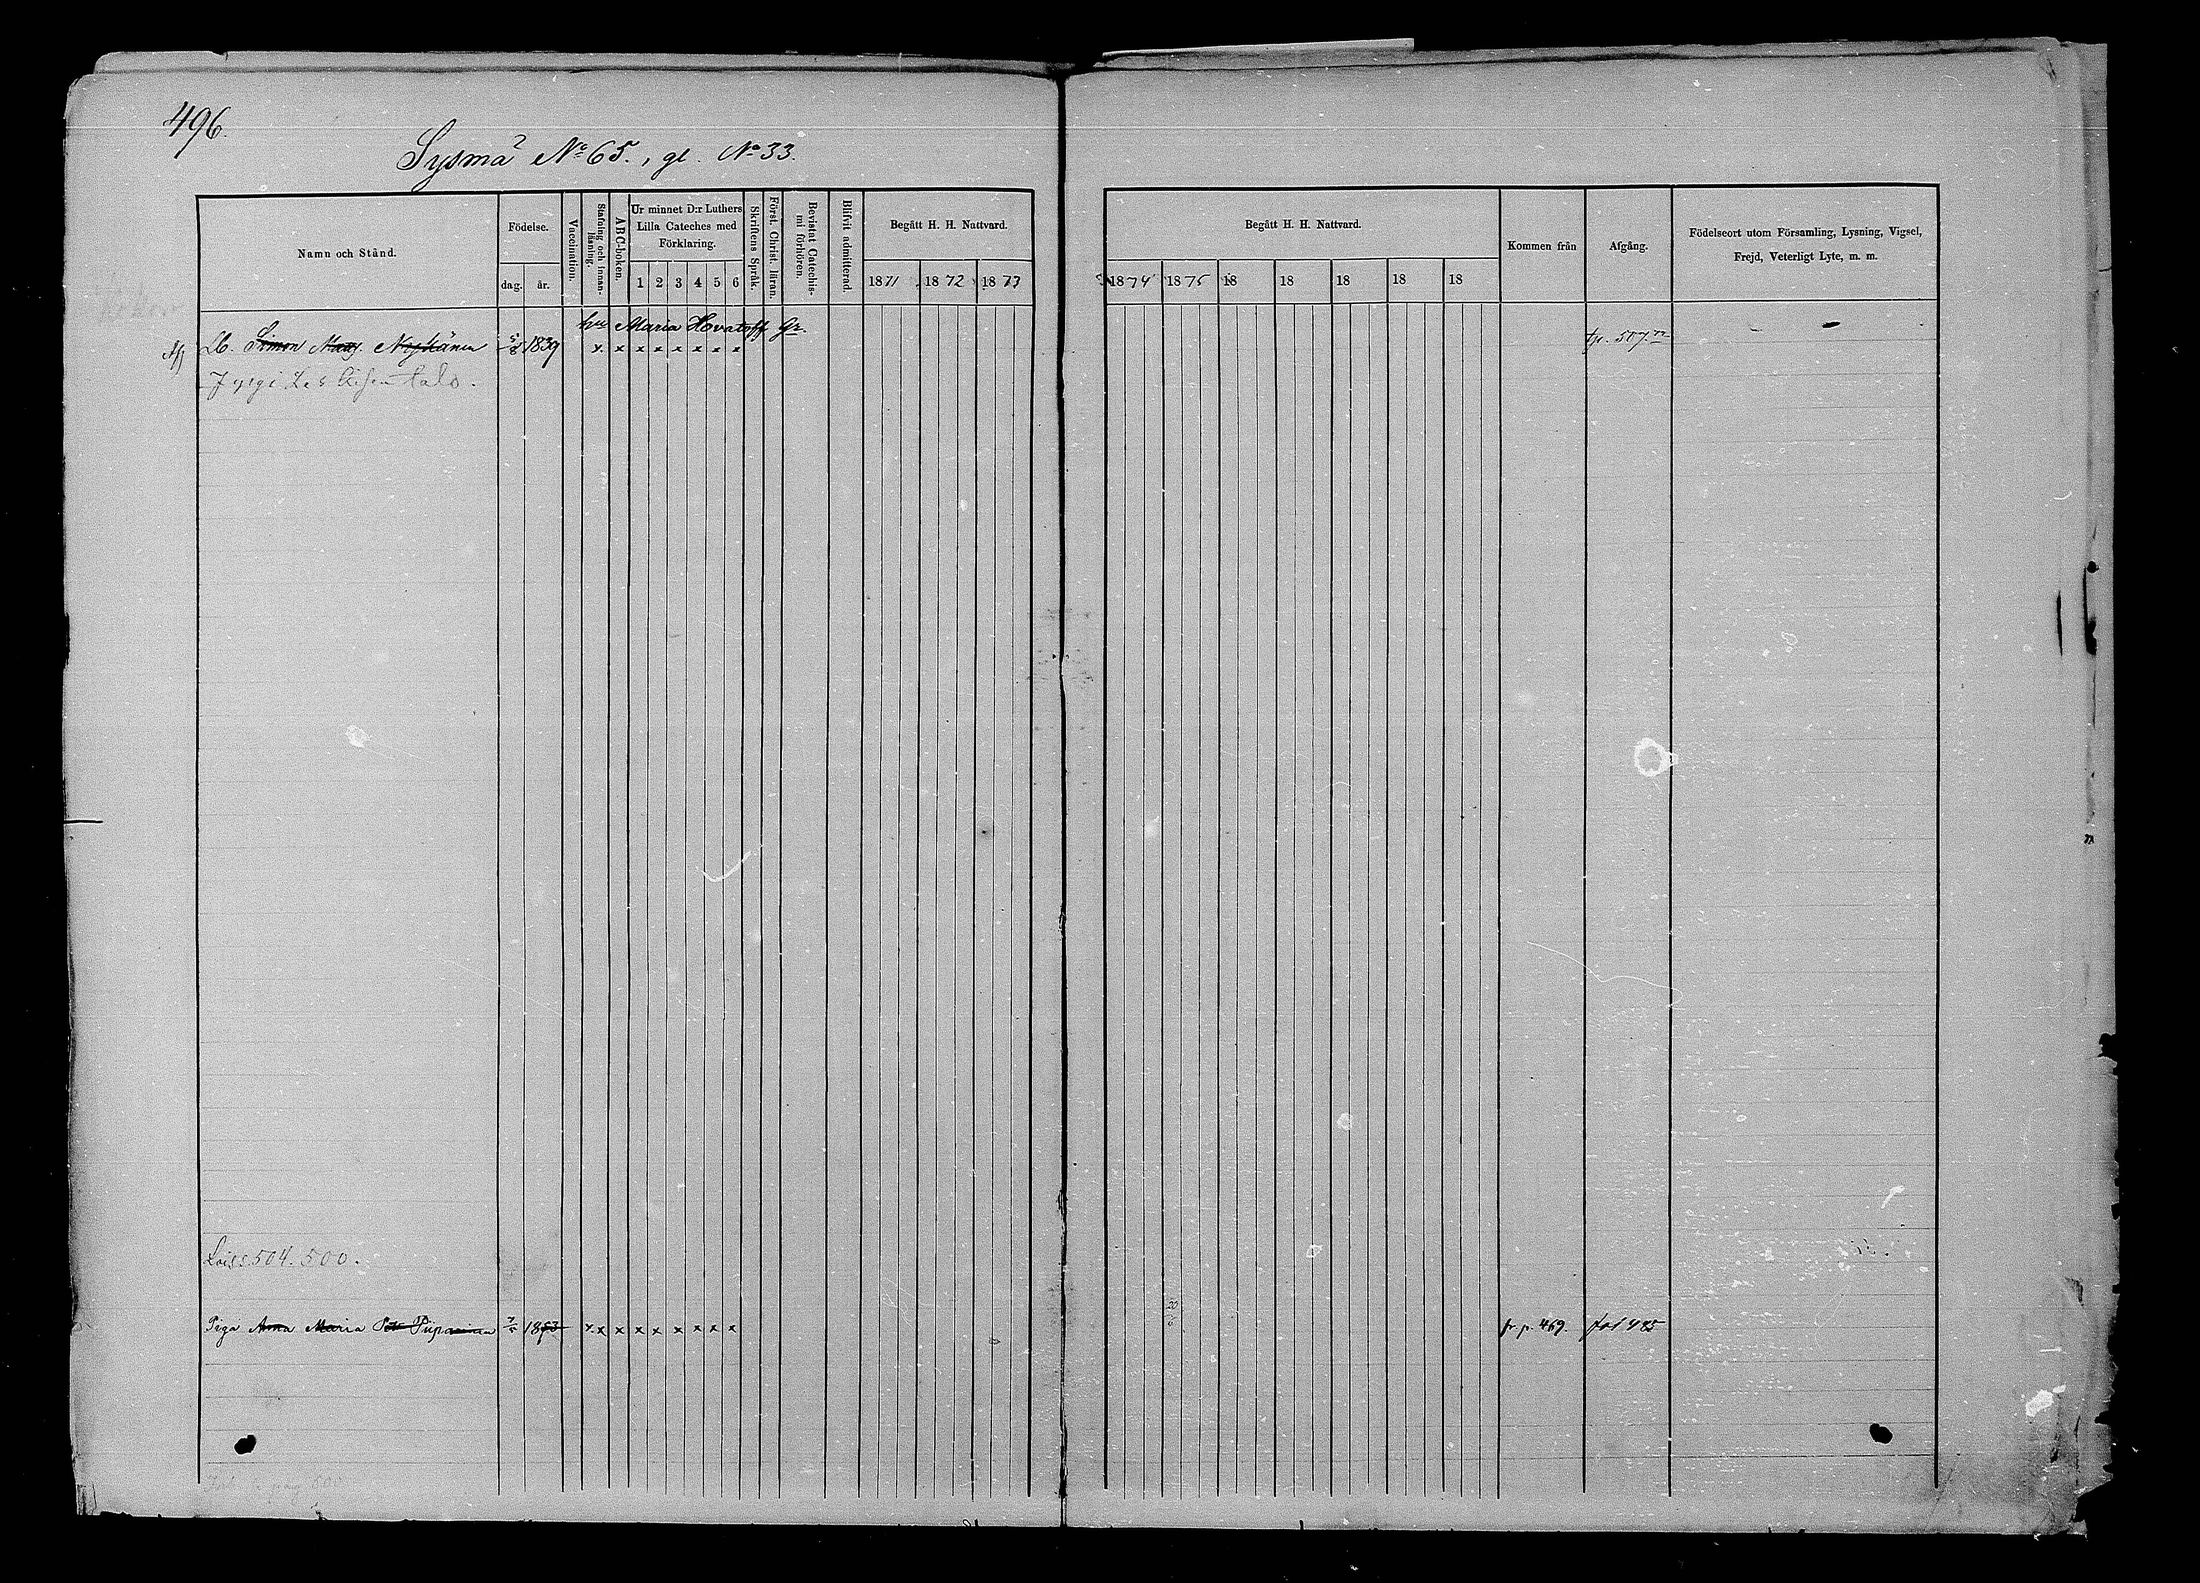 496.
Sysmä No 65., gl. No 33.
Namn och Stånd. Födelse. Vaccination. Stafning och Innanläsning. ABC-boken. Ur minnet D:r Luthers Lilla Cateches med Förklaring. Skriftens Språk. Först. Christ. läran. Bevistat Catechismi förhören. Blifvit admitterad. Begått H. H. Nattvard. Begått H. H. Nattvard. Kommen från Afgång. Födelseort utom Församling, Lysning, Vigsel, Frejd, Veterligt Lyte, m. m.
dag. år. 1 2 3 4 5 6 1871 1872 1873 1874 1875 18 18 18 18 18
hu Maria Hovatoff Gr.
Lb. Simon Matts. Nykänen 5/8 1839 x x x x x x x x fl. 507.
talo.
Lais. 504. 500.
Piga Anna Maria Piiparinen 1853 x x x x x x x x x 20/6 fr p. 469. fol 485